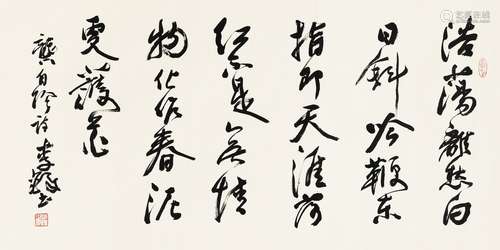 浩蕩離愁白
日斜吟鞭東
指即天涯落
紅不是無情
物化作春泥
更護花
龔自珍詩 李鐸书